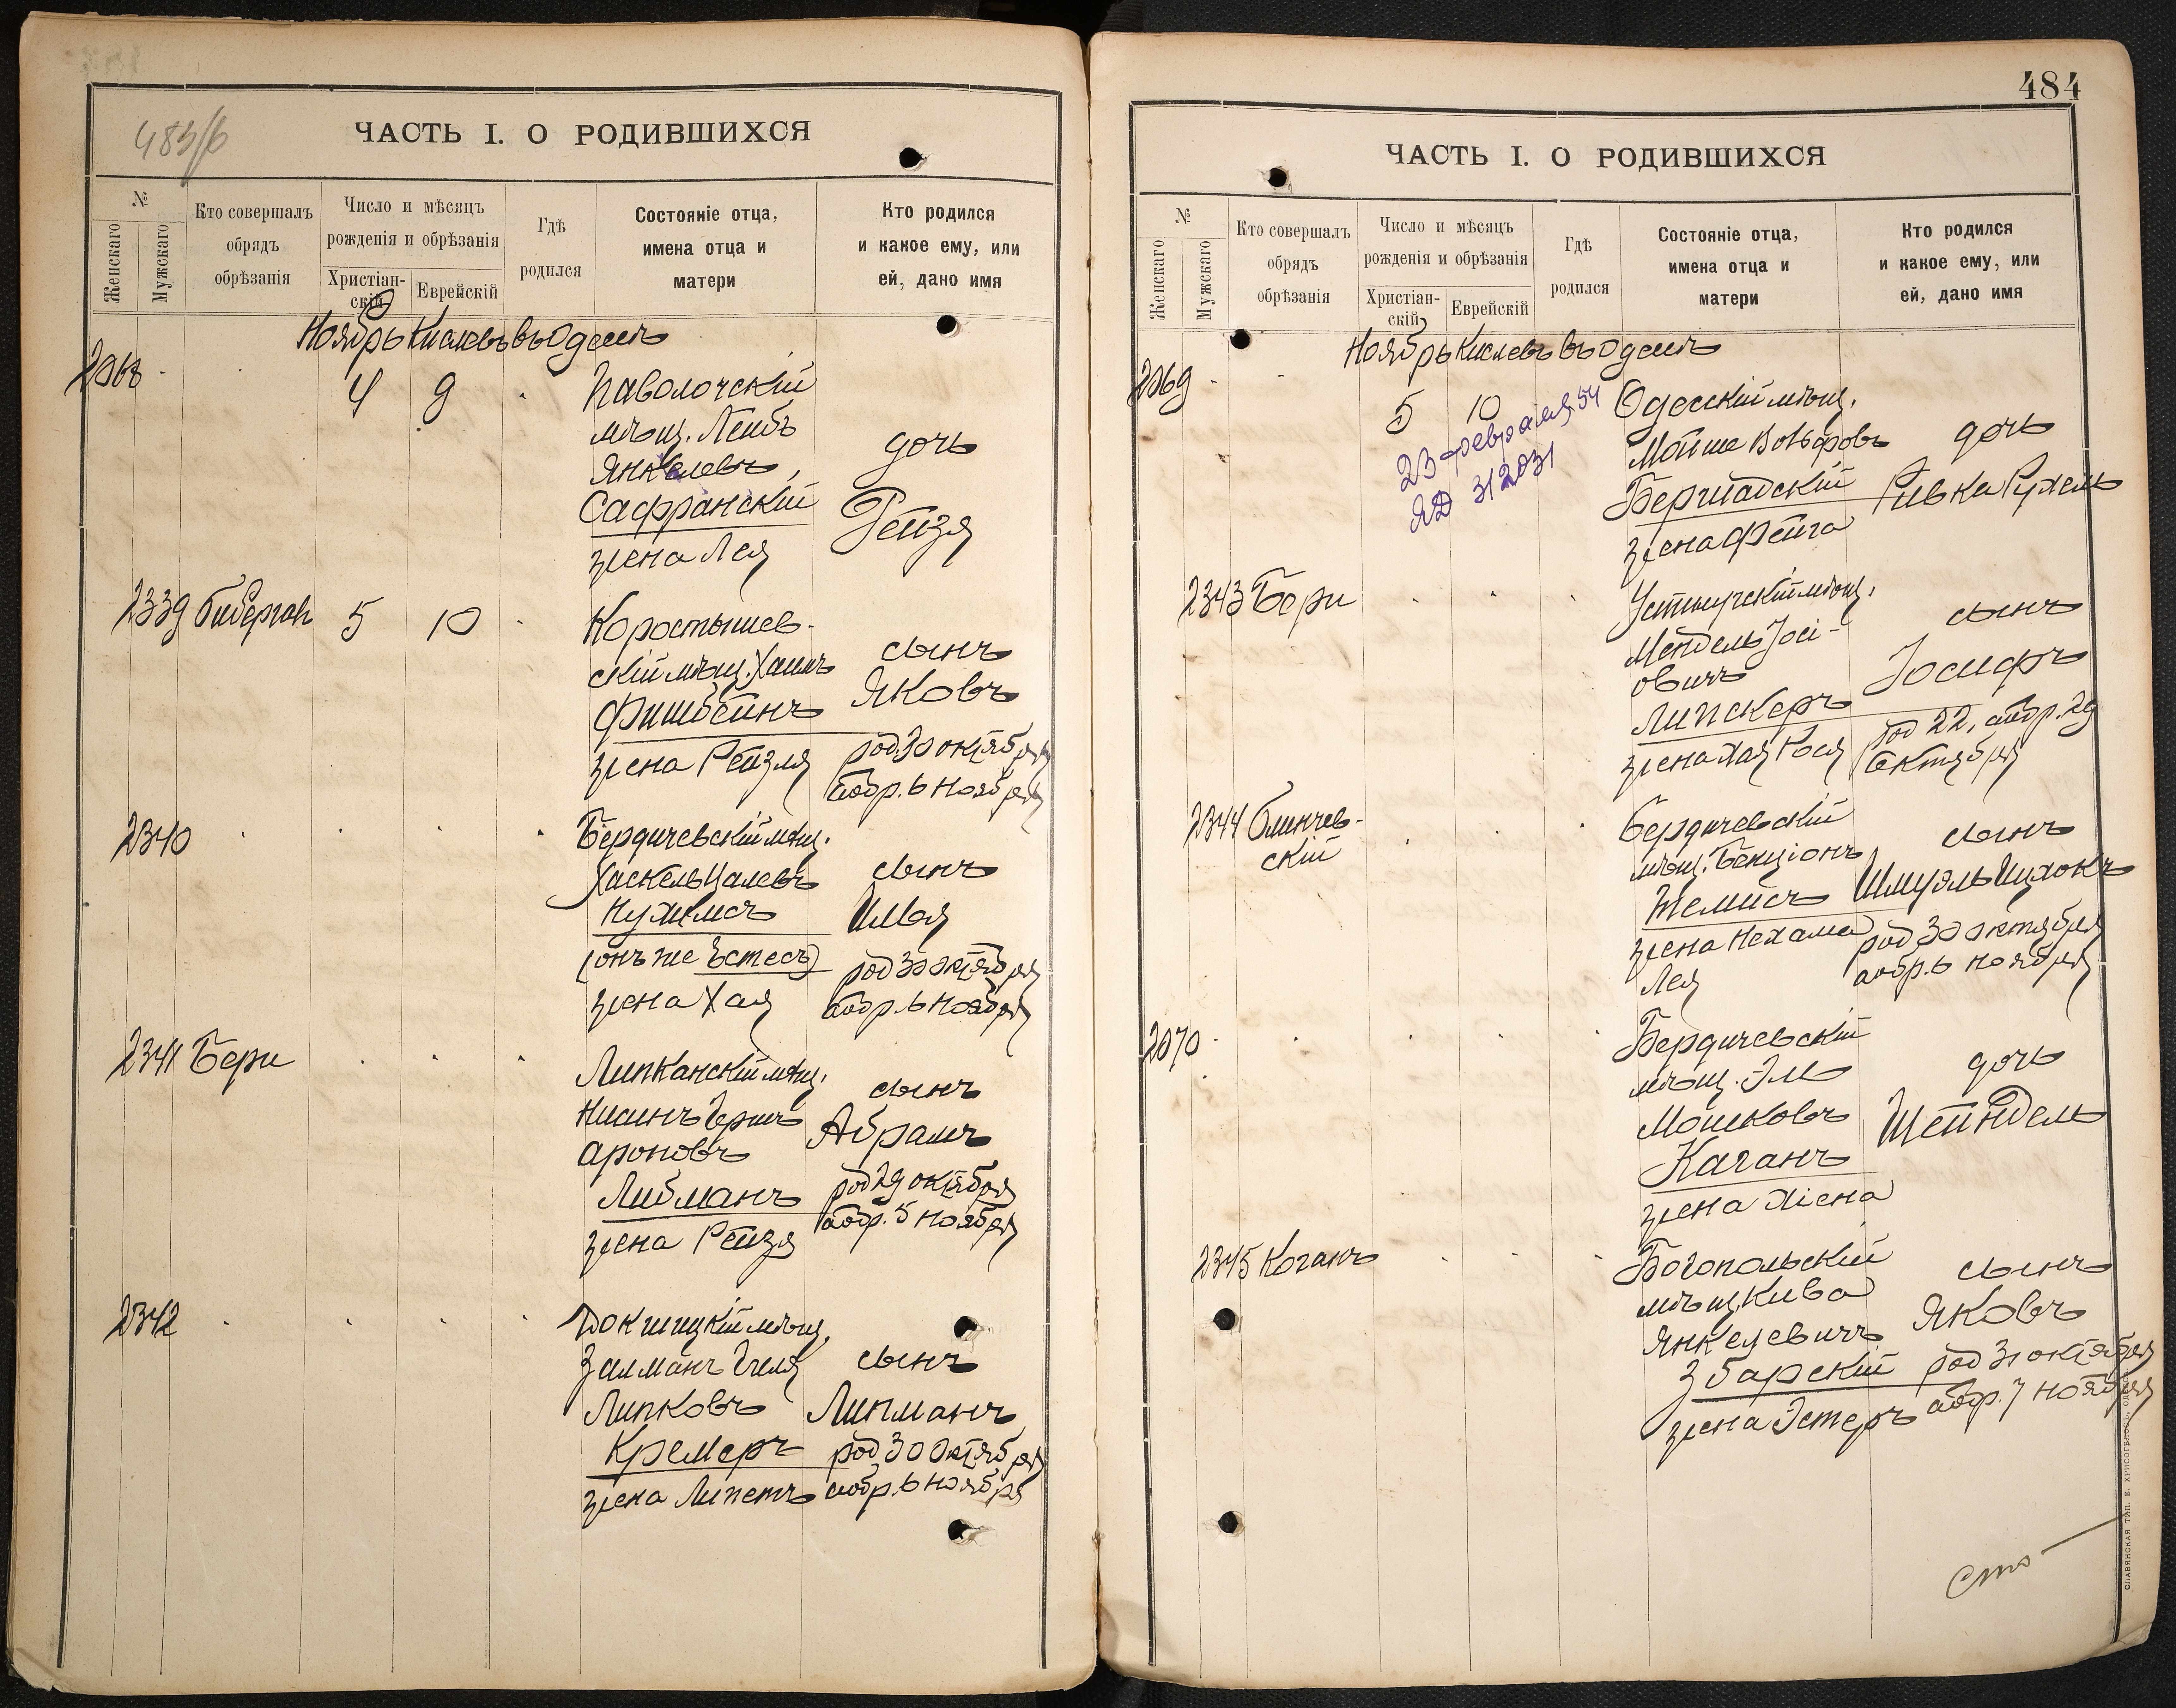 483/б
ЧАСТЬ I. О РОДИВШИХСЯ
№
Женскаго
Мужскаго
Кто совершалъ
обрядъ
обрѣзанія
Число и мѣсяцъ
рожденія и обрѣзанія
Христіан-
скій
Еврейскій
Гдѣ
родился
Состояніе отца,
имена отца и
матери
Кто родился
и какое ему, или
ей, дано имя
Ноябрь Кислевъ въ Одессѣ
2068
4 9
Паволочскій
мѣщ. Лейбъ
Янкелевъ,
Сафранскій
жена Лея
дочь
Рейзя
2339
5 10
Коростышев-
скій мѣщ. Хаимъ
Фишбейнъ
жена Рейзля
сынъ
Яковъ
род. 30 октября
обр. 6 ноября
2340
Бердичевскій мѣщ.
Хаскель Цалевъ
Нухимсъ
(онъ же Эстесъ)
жена Хая
сынъ
род 30 октября
обр. 6 ноября
2341 Бери
Липканскій мѣщ.
Нисинъ Гершъ
Ароновъ
Либманъ
жена Рейзя
сынъ
Абрамъ
род 29 октября
обр. 5 ноября
2342
Докшицкій мѣщ.
Залманъ Гиля
Липковъ
Кремеръ
жена Липетъ
сынъ
Липманъ
род 30 октября
обр. 6 ноября
484
ЧАСТЬ I. О РОДИВШИХСЯ
№
Женскаго
Мужскаго
Кто совершалъ
обрядъ
обрѣзанія
Число и мѣсяцъ
рожденія и обрѣзанія
Христіан-
скій
Еврейскій
Гдѣ
родился
Состояніе отца,
имена отца и
матери
Кто родился
и какое ему, или
ей, дано имя
Ноябрь Кислевъ въ Одессѣ
2069
5 10
23 февраля 54
ЯД 312031
Одесскій мѣщ.
Мойше Вольфовъ
Бершадскій
жена Фейга
дочь
Ривка Рухель
2343 Бери
мѣщ.
Мендель Іосі-
овичъ
Липскеръ
жена Хая Рося
сынъ
Іосифъ
род 22, обр. 29
октября
2344 Блинчев-
скій
Бердичевскій
мѣщ. Бенціонъ
жена Нехама
Лея
сынъ
Шмуэль Ицхокъ
род 30 октября
обр. 6 ноября
2070
Бердичевскій
мѣщ. Эль
Мошковъ
Каганъ
жена Хіена
дочь
Шейндель
2345 Коганъ
Богопольскій
мѣщ. Кива
Янкелевичъ
Збарскій
жена Эстеръ
сынъ
Яковъ
род 31 октября
обр. 7 ноября
сто
СЛАВЯНСКАЯ ТИП. Е. ХРИСОГЕЛОСЪ, ОДЕССА